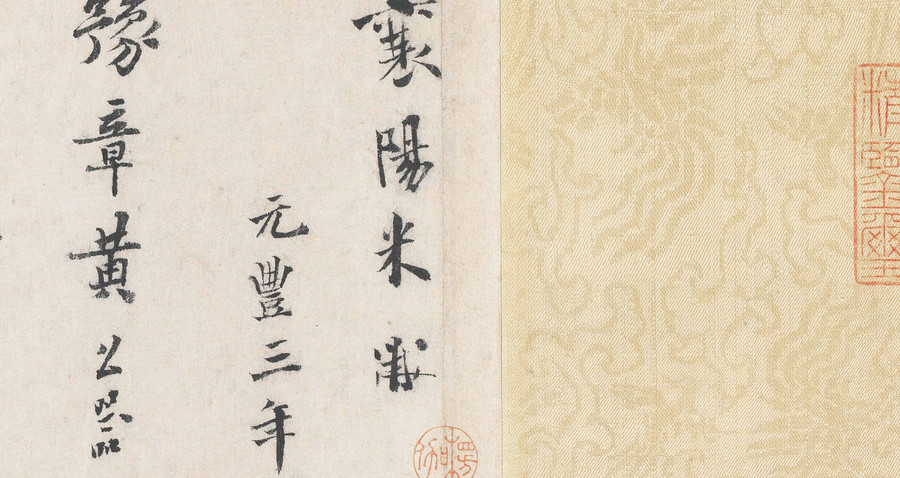 精鑑璽
襄陽米黻
元豐三年
豫章黃公